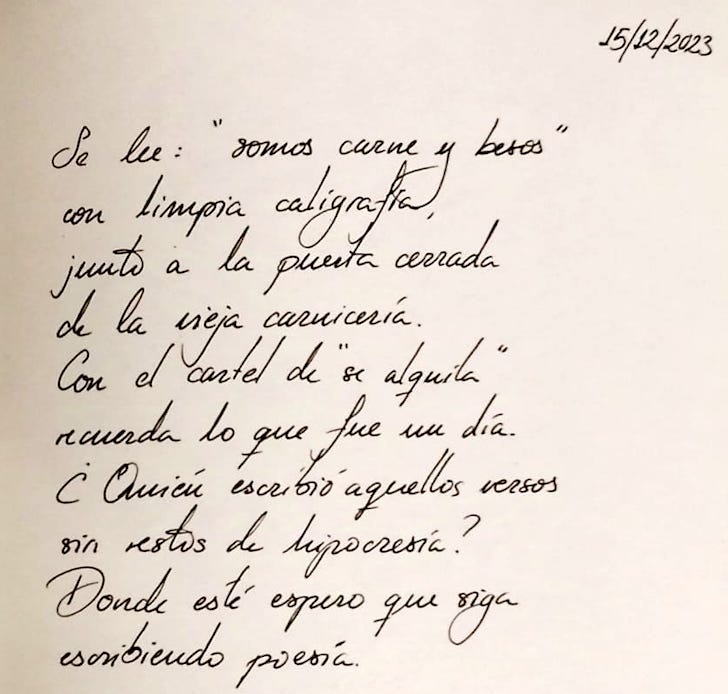 15/12/2023
Se lee: "somos carne y besos"
con limpia caligrafía,
junto a la puerta cerrada
de la vieja carnicería.
Con el cartel de "se alquila"
recuerda lo que fue un día.
¿Quién escribió aquellos versos
sin restos de hipocresía?
Donde esté espero que siga
escribiendo poesía.